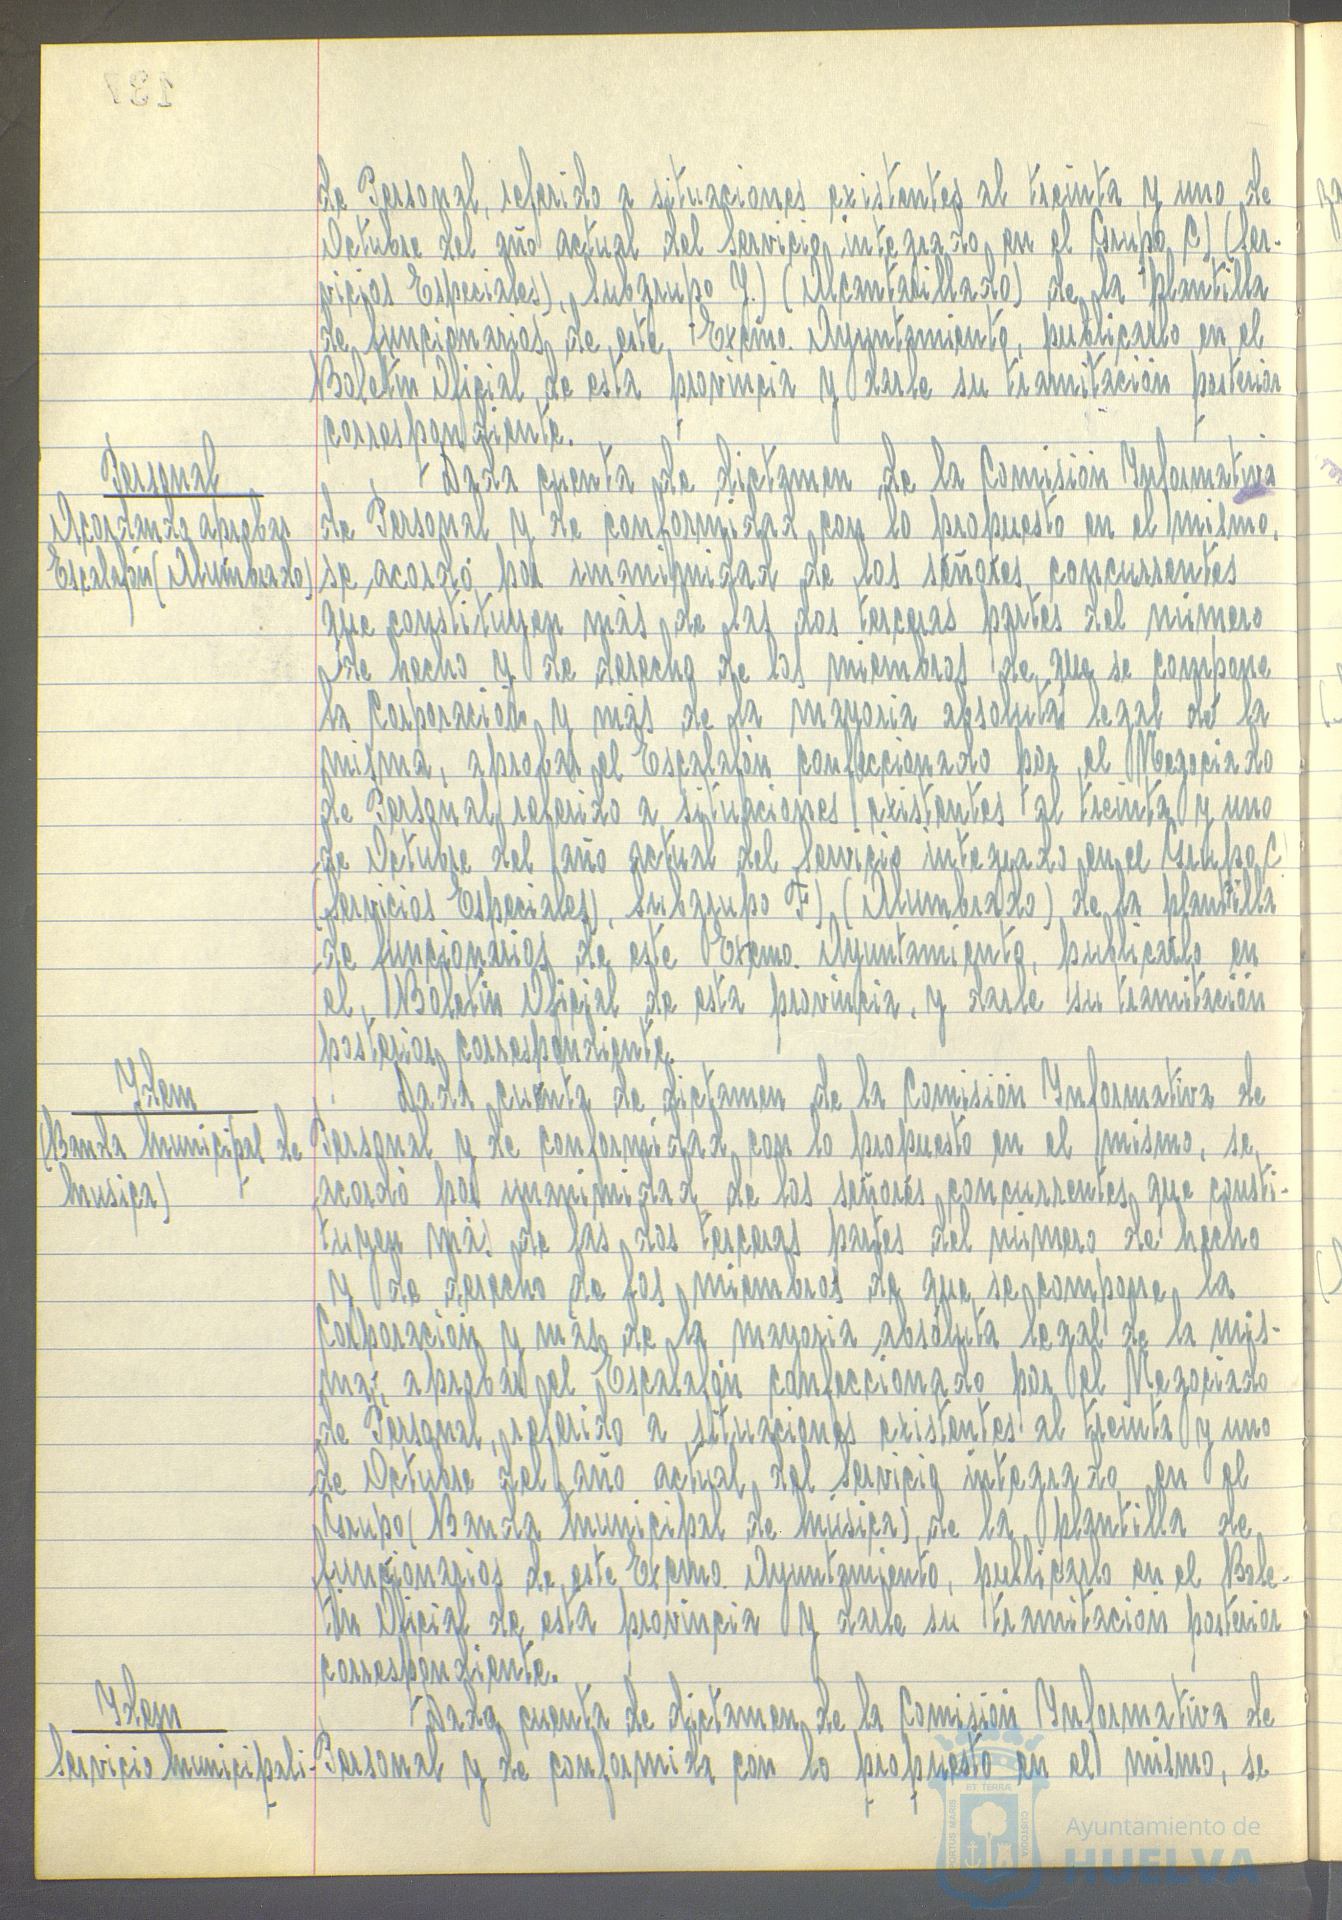 137
de Personal, referido a situaciones existentes al treinta y uno de
Octubre del año actual del Servicio integrado en el Grupo C) (Ser-
vicios Especiales), Subgrupo Y.) (Alcantarillado) de la plantilla
de funcionarios de este Excmo. Ayuntamiento, publicarlo en el
Boletín Oficial de esta provincia y darle su tramitación posterior
correspondiente.
Personal
Acordando aprobar
Escalafón (Alumbrado)
Dada cuenta de dictamen de la Comisión Informativa
de Personal y de conformidad con lo propuesto en el mismo,
se acordó por unanimidad de los señores concurrentes
que constituyen más de las dos terceras partes del número
de hecho y de derecho de los miembros de que se compone
la Corporación y más de la mayoria absoluta legal de la
misma, aprobar el Escalafón confeccionado por el Negociado
de Personal referido a situaciones existentes al treinta y uno
de Octubre del año actual del Servicio integrado en el Grupo C
(Servicios Especiales), Subgrupo F) (Alumbrado) de la plantilla
de funcionarios de este Excmo. Ayuntamiento, publicarlo en
el Boletín Oficial de esta provincia, y darle su tramitación
posterior correspondiente.
Ydem
(Banda Municipal de
Musica)
Dada cuenta de dictamen de la Comisión Informativa de
Personal y de conformidad con lo propuesto en el mismo, se
acordó por unanimidad de los señores concurrentes que consti-
tuyen más de las dos terceras partes del número de hecho
y de derecho de los miembros de que se compone la
Corporación y más de la mayoria absoluta legal de la mis-
ma, aprobar el Escalafón confeccionado por el Negociado
de Personal, referido a situaciones existentes al treinta y uno
de Octubre del año actual del Servicio integrado en el
Grupo (Banda Municipal de Música) de la plantilla de
funcionarios de este Excmo. Ayuntamiento, publicarlo en el Bole-
tín Oficial de esta provincia y darle su tramitación posterior
correspondiente.
Ydem
Servicio Municipali-
Dada cuenta de dictamen de la Comisión Informativa de
Personal y de conformida con lo propuesto en el mismo, se
ET TERRÆ
PORTUS MARIS
CUSTODIA
Ayuntamiento de
HUELVA